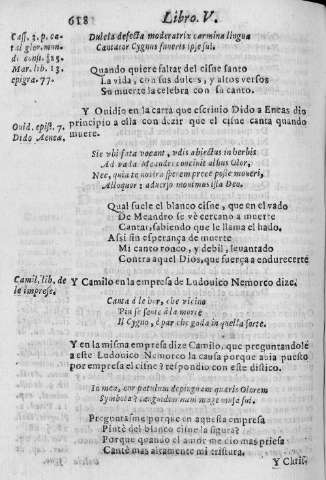 618
Libro. V.
Cass. 3. p. ca-
tal glor. mun-
di consi. 
Mar. lib. 13.
epigra. 77.
Dulcia defecta moderatrix carmina lingua
Cantator Cygnus funeris ipse sui.
Quando quiere faltar del cisne santo
La vida, con sus dulces, y altos versos
Su muerte la celebra con su canto.
Ouid. epist. 7.
Dido Aeneæ.
Y Ouidio en la carta que escriuio Dido a Eneas dio
principio a ella con dezir que el cisne canta quando
muere.
Sic vbi fata vocant, vdis abiectus in herbis
Ad vada Meandri concinit albus Olor,
Nec, quia te nostra sperem prece posse moueri,
Alloquor: aduerso mouimus ista Deo.
Qual suele el blanco cisne, que en el vado
De Meandro se vè cercano a muerte
Cantar, sabiendo que le llama el hado.
Assi sin esperança de muerte
Mi canto ronco, y debil, leuantado
Contra aquel Dios, que fuerça a endurecerte
Camil, lib. de
le imprese.
Y Camilo en la empresa de Ludouico Nemorco dize.
Canta à le hor, che vicino
Piu se sente à la morte
Il Cygno, è par che goda in quella sorte.
Y en la misma empresa dize Camilo, que preguntandole
a este Ludouico Nemorco la causa porque auia puesto
por empresa el cisne? respondio con este distico.
In mea, cur patulum depingnam quæris Olorem
Symbola? 
Preguntasme porque en aquesta empresa
Pintè del blanco cisne la figura?
Porque quando el amor me dio mas priesa
Cantè mas altamente mi tristura.
Y Chris-